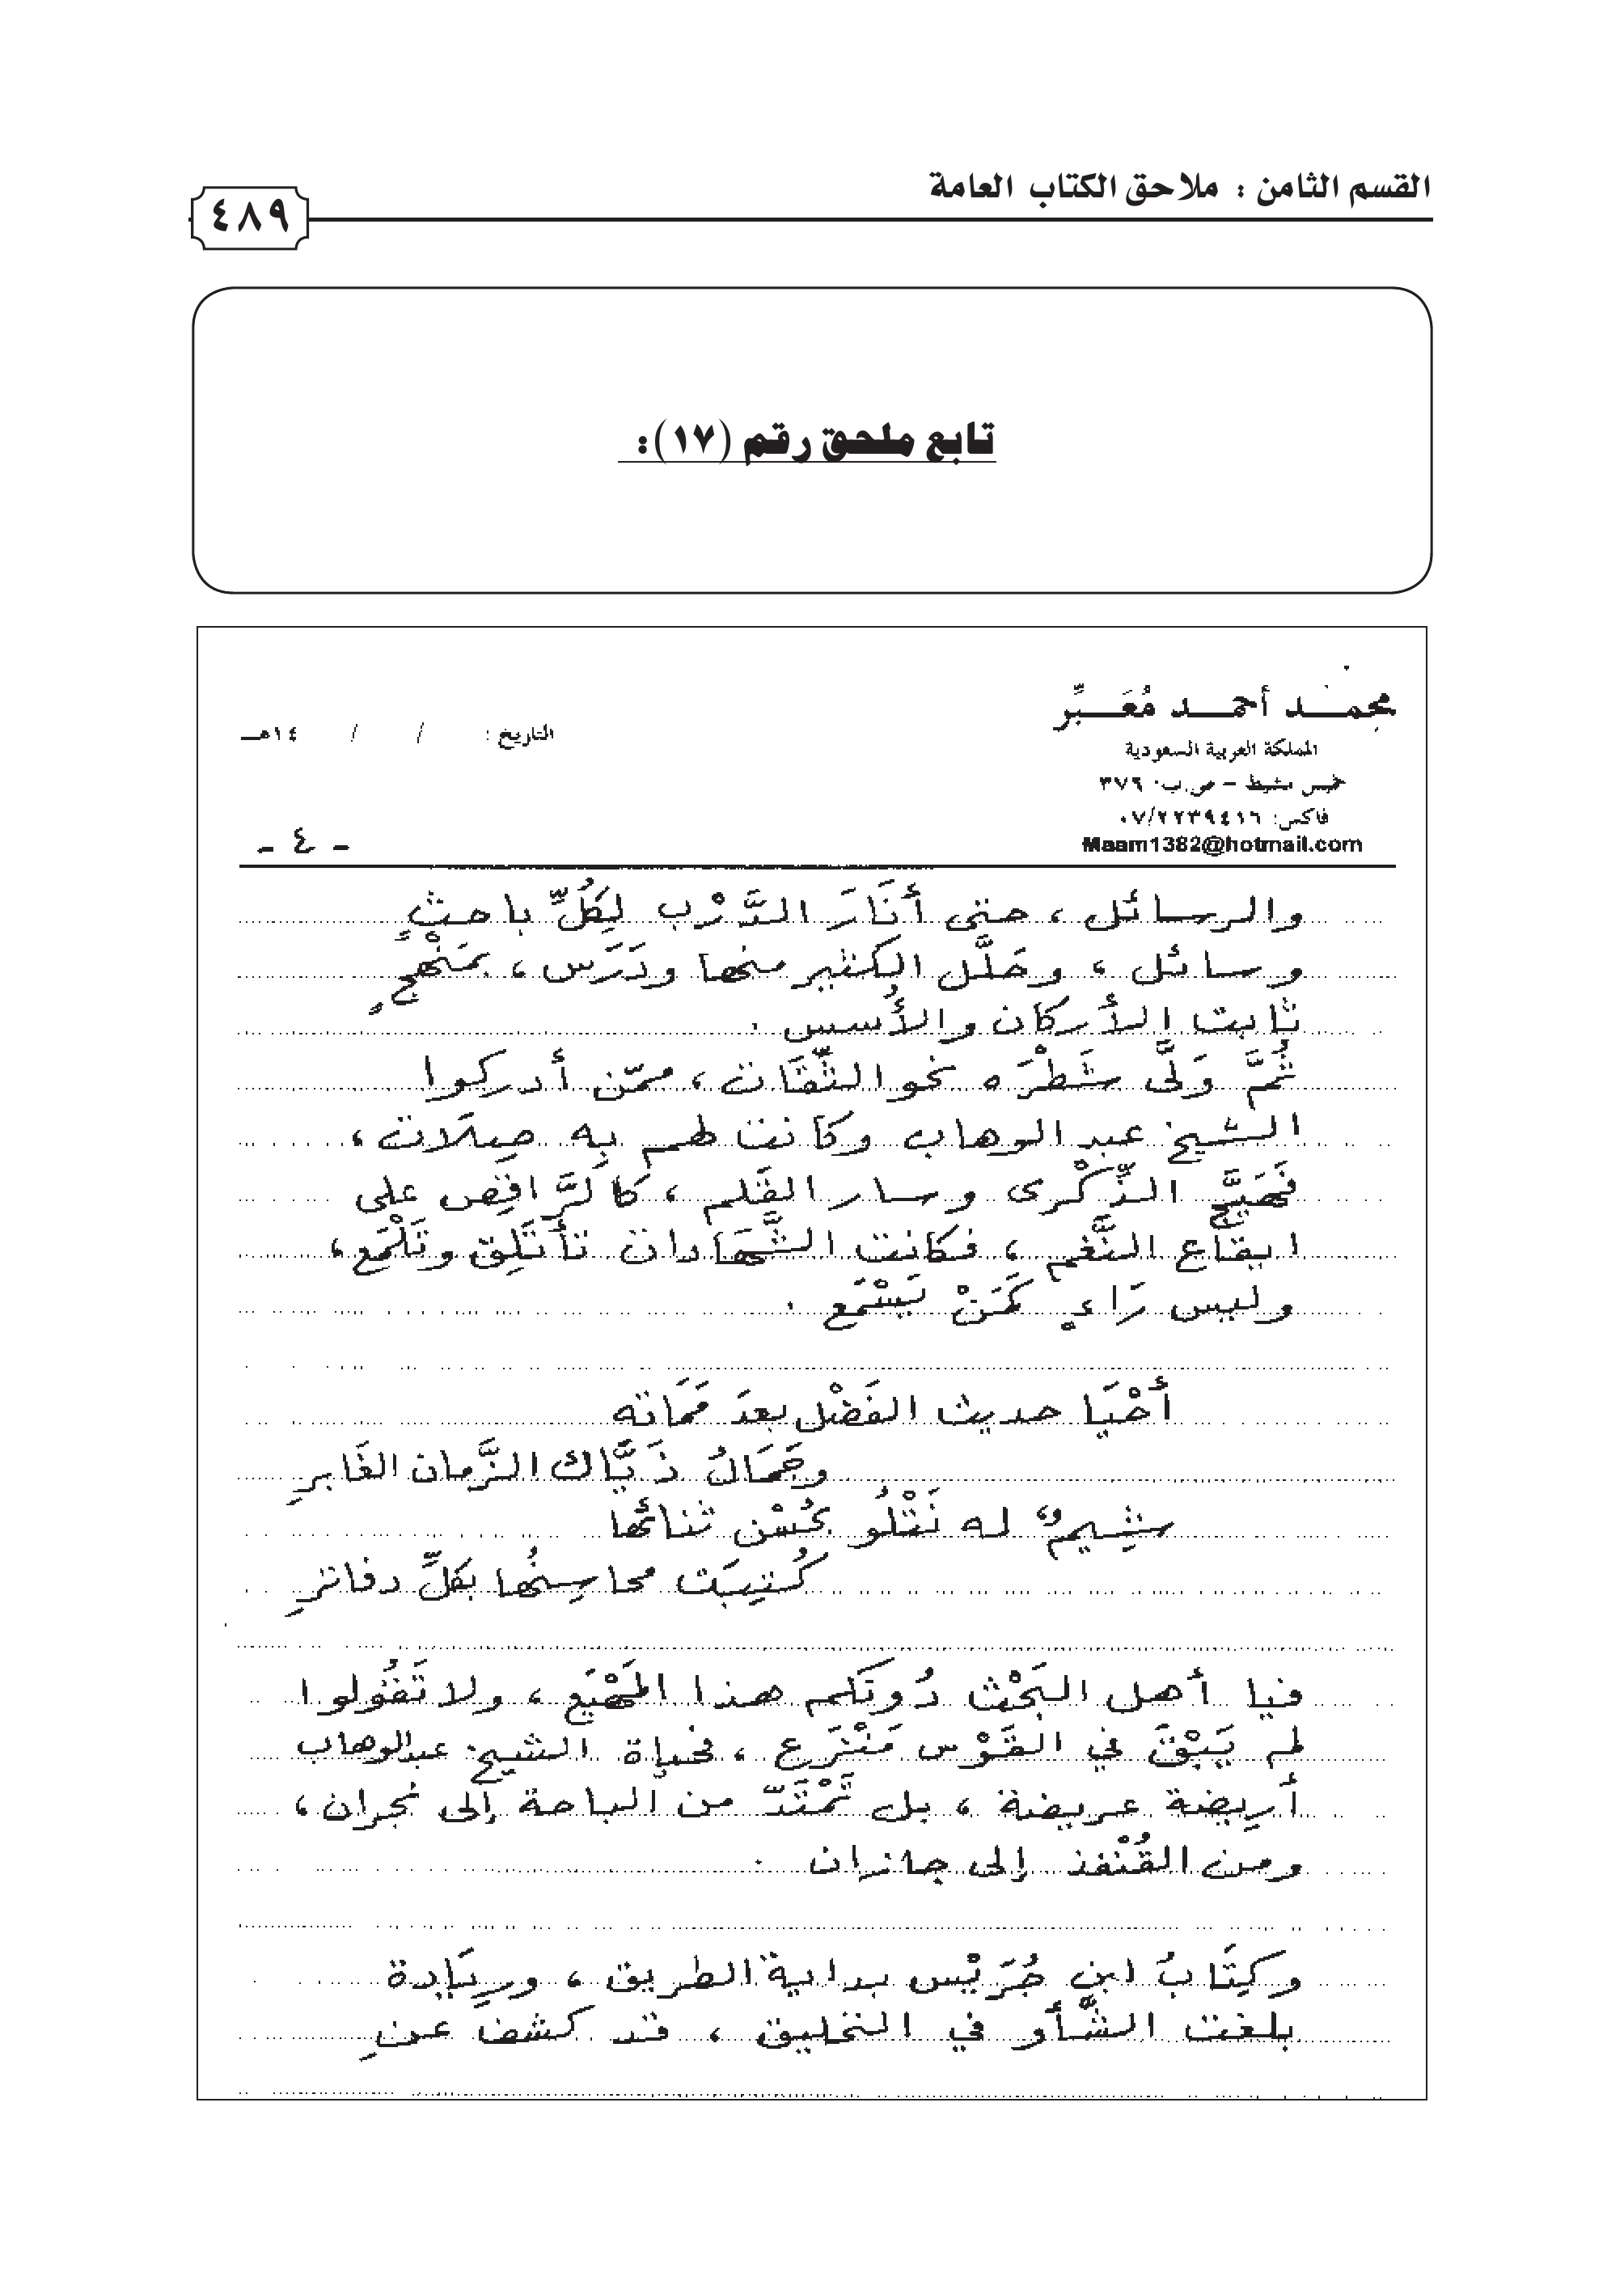 القسم الثامن : ملاحق الكتاب العامة
٤٨٩
تابع ملحق رقم (١٧):
محمد أحمد مُعَبِّر
المملكة العربية السعودية
خميس مشيط - ص.ب: ٣٧٦
فاكس: ٠٧/٢٢٣٩٤١٦
Maam1382@hotmail.com
التاريخ : / / ١٤هـ
- ٤ -
والرسائل ، حتى أَنَارَ الدَّرْب لِكُلِّ باحثٍ
وسائل ، وحَلَّل الكثير منها ودَرَس ، بمَنْهَجٍ
ثابت الأركان والأُسس .
ثُمَّ وَلَّى شَطْرَه نحو الثِّقَات ، ممّن أدركوا
الشيخ عبد الوهاب وكانت لهم بِه صِلَات ،
فَهَيَّج الذِّكْرى وسار القَلم ، كالرَّاقِص على
ايقاع النَّغم ، فكانت الشَّهَادات تأتَلِق وتَلْمَع ،
وليس رَاءٍ كَمَنْ يَسْمَع .
أَحْيَا حديث الفَضْل بعدَ مَمَاته
وجَمَالُ ذَيَّاك الزَّمان الغَابرِ
شِيمٌ له نَتْلُو بحُسْن ثنائها
كُتِبَت محاسِنُها بكلِّ دفاترِ
فيا أهل البَحْث دُونَكم هذا المَهْيَع ، ولا تَقُولوا
لم يَبْقَ في القَوْس مَنْزَع ، فحياة الشيخ عبدالوهاب
أريضة عريضة ، بل تَمْتَدّ من الباحة إلى نجران ،
ومن القُنْفذ إلى جازان .
وكِتَابُ ابن جُرَيْس بداية الطريق ، ورِيَادة
بلغت الشَّأو في التحليق ، قد كشف عنِ